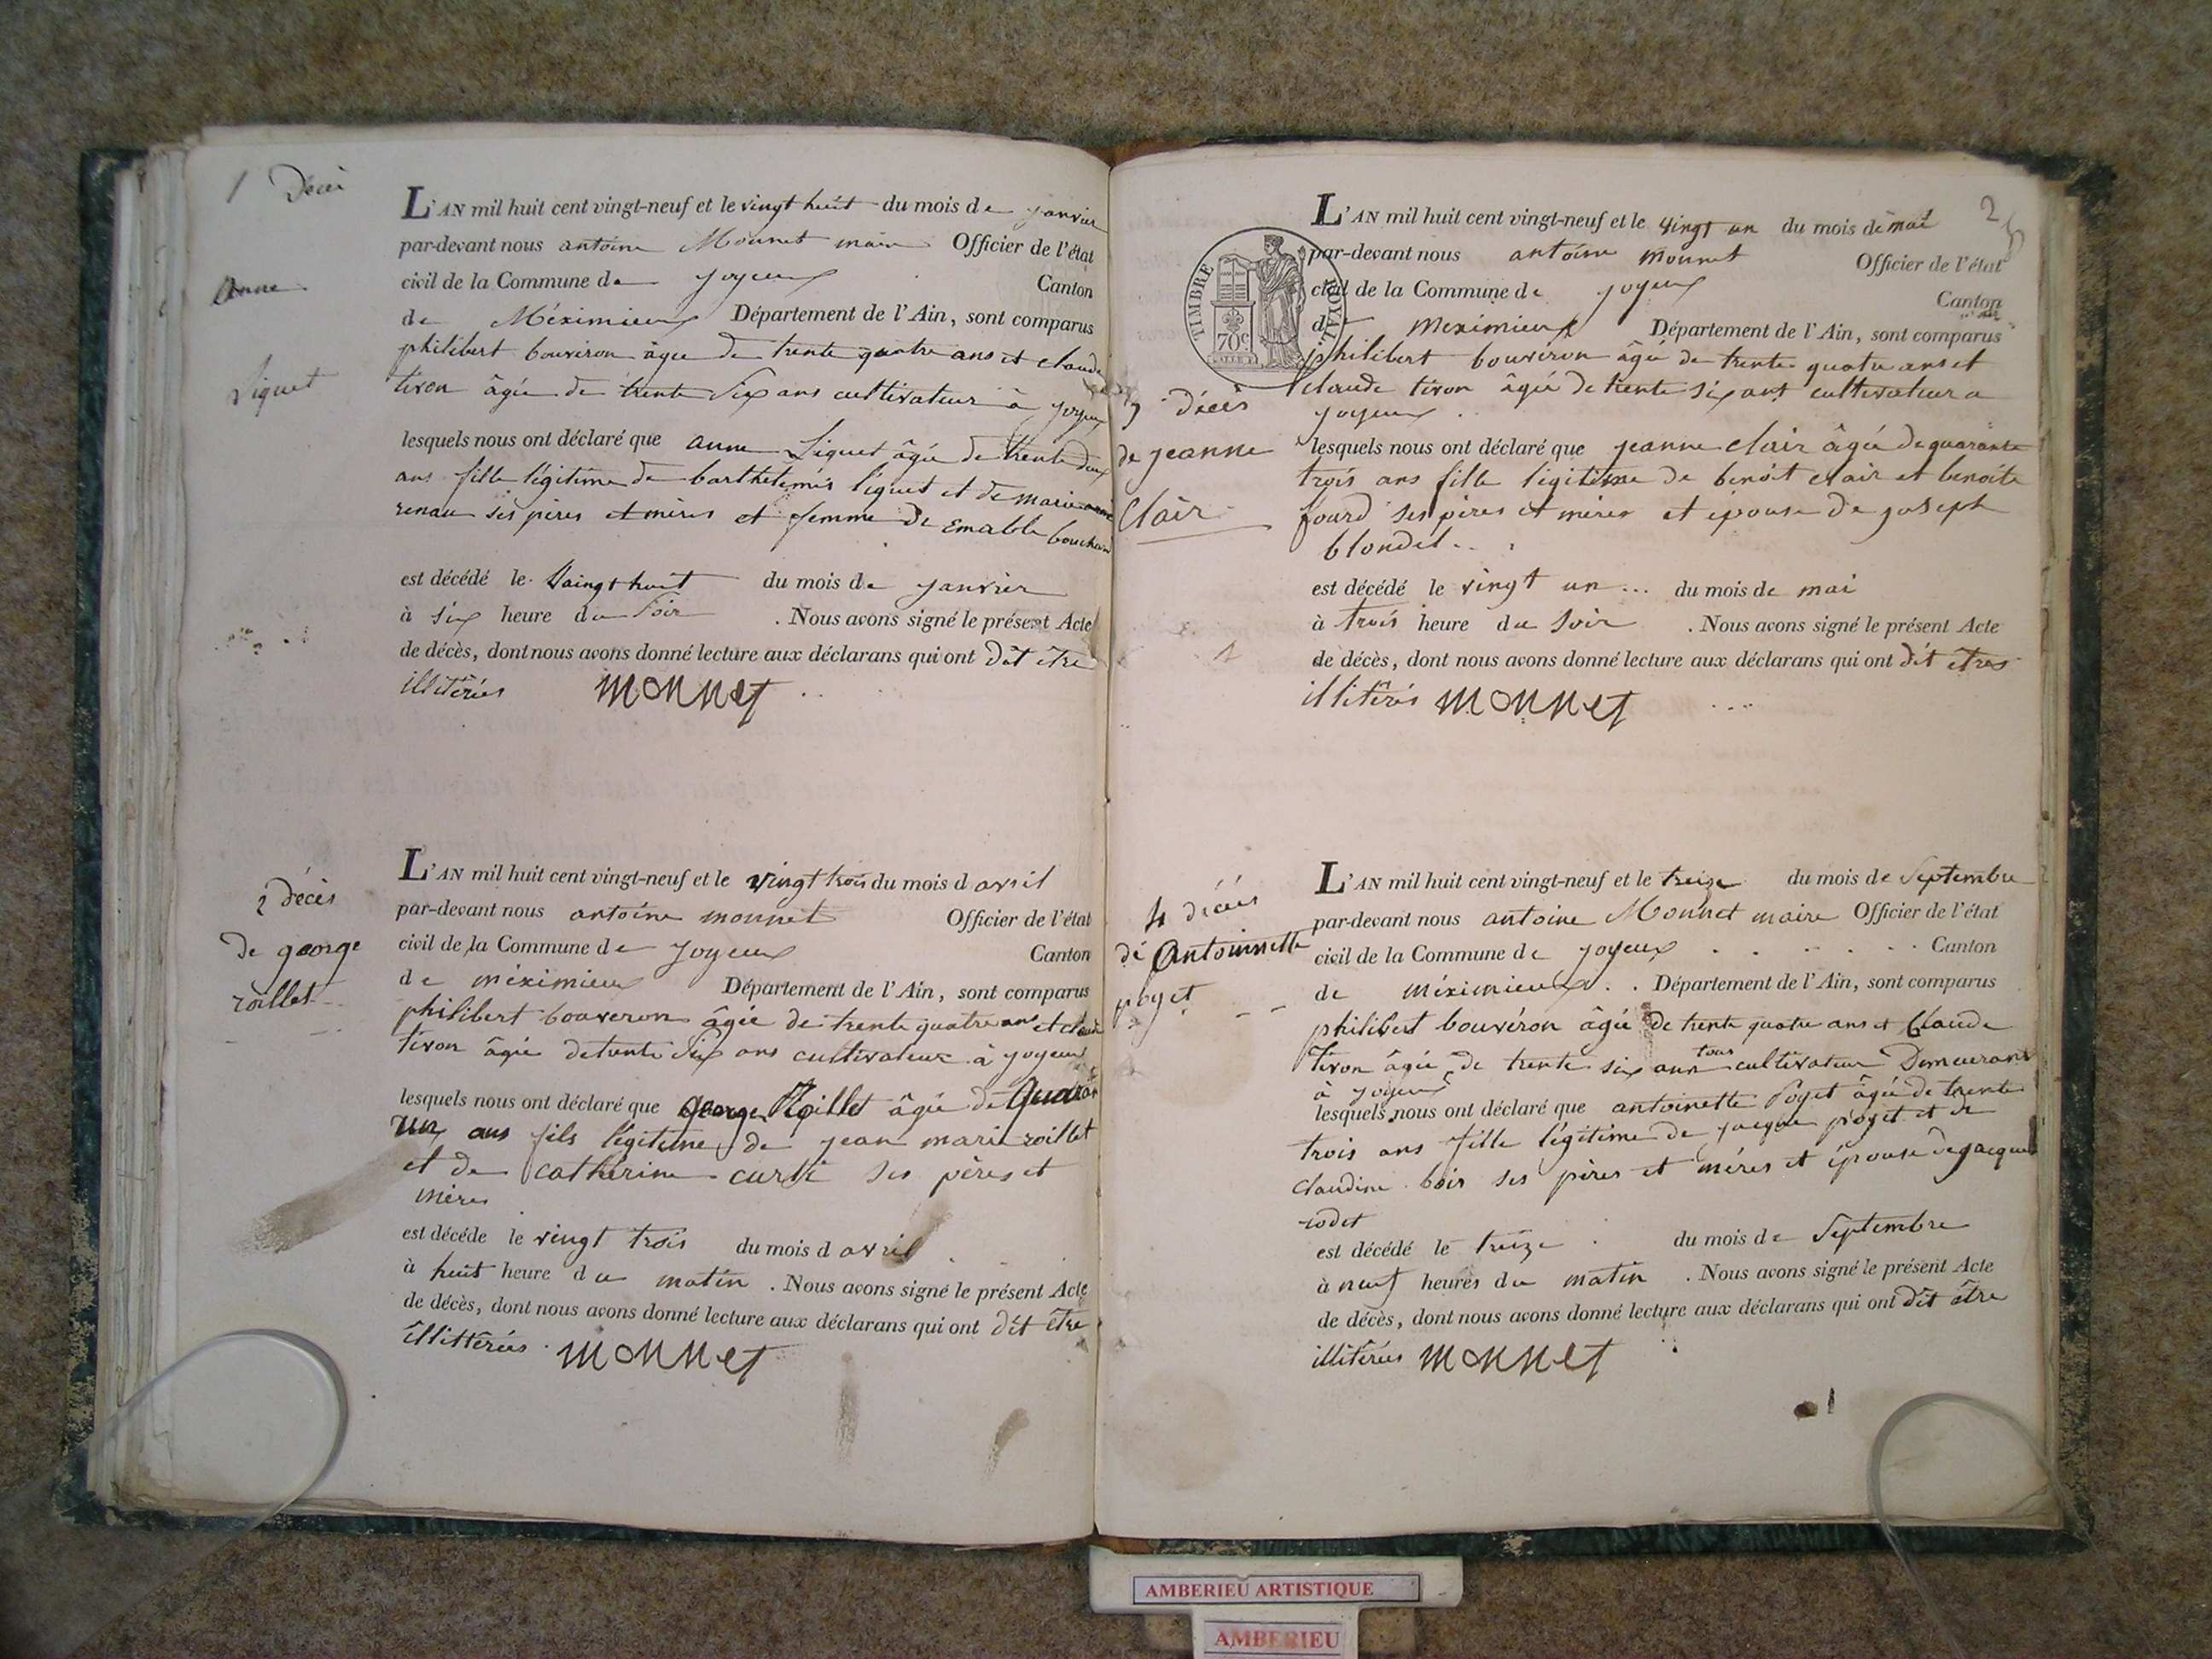 1 Décès
Anne
Liguet
L'AN mil huit cent vingt-neuf et le vingt huit du mois de janvier
par-devant nous antoine Monnet maire Officier de l'état
civil de la Commune de joyeux Canton
de Méximieux Département de l'Ain, sont comparus
philibert bouveron âgée de trente quatre ans et claude
tiron âgée de trente Six ans cultivateur à joyeux
lesquels nous ont déclaré que anne Liguet âgée de trente deux
ans fille légitime de barthelemis liguet et de marie
renau ses pères et mères et femme de Emable
est décédé le Vaingt huit du mois de janvier
à six heure du Soir . Nous avons signé le présent Acte
de décès, dont nous avons donné lecture aux déclarans qui ont dit être
illitérées monnet
2 décès
de george
roillet
L'AN mil huit cent vingt-neuf et le vingt trois du mois d avril
par-devant nous antoine monnet Officier de l'état
civil de la Commune de Joyeux Canton
de méximieux Département de l'Ain, sont comparus
philibert bouveron âgée de trente quatre ans et claude
tiron âgée de trente Six ans cultivateur à joyeux
lesquels nous ont déclaré que george Roillet âgée de Quaran
un ans fils légitime de jean marie roillet
et de catherine curti ses pères et
mères
est décéde le vingt trois du mois d avril
à huit heure du matin . Nous avons signé le présent Acte
de décès, dont nous avons donné lecture aux déclarans qui ont dit être
illittérées monnet
2
TIMBRE ROYAL
70c
3 décès
de jeanne
Clair
L'AN mil huit cent vingt-neuf et le vingt un du mois de mai
par-devant nous antoine monnet Officier de l'état
civil de la Commune de joyeux Canton
de meximieux Département de l'Ain, sont comparus
philibert bouveron âgé de trente quatre ans et
claude tiron âgée de trente six ans cultivateur a
joyeux
lesquels nous ont déclaré que jeanne clair âgée de quarante
trois ans fille légitime de benoit clair et benoite
fourd ses pères et mères et épouse de joseph
blondel
est décédé le vingt un ... du mois de mai
à trois heure du soir . Nous avons signé le présent Acte
de décès, dont nous avons donné lecture aux déclarans qui ont dit êtres
illitérés monnet
4 décès
de Antoinnette
poget
L'AN mil huit cent vingt-neuf et le treize du mois de Septembre
par-devant nous antoine Monnet maire Officier de l'état
civil de la Commune de joyeux Canton
de méximieux Département de l'Ain, sont comparus
philibert bouvéron âgée de trente quatre ans et Claude
tiron âgée de trente six ans tous cultivateur Demeurant
à joyeux
lesquels nous ont déclaré que antoinette Poget âgée de trente
trois ans fille légitime de jacque poget et de
claudine bois ses pères et mères et épouse de jacque
rodet
est décédé le treize du mois de Septembre
à neuf heures du matin . Nous avons signé le présent Acte
de décès, dont nous avons donné lecture aux déclarans qui ont dit être
illitérées monnet
AMBERIEU ARTISTIQUE
AMBERIEU